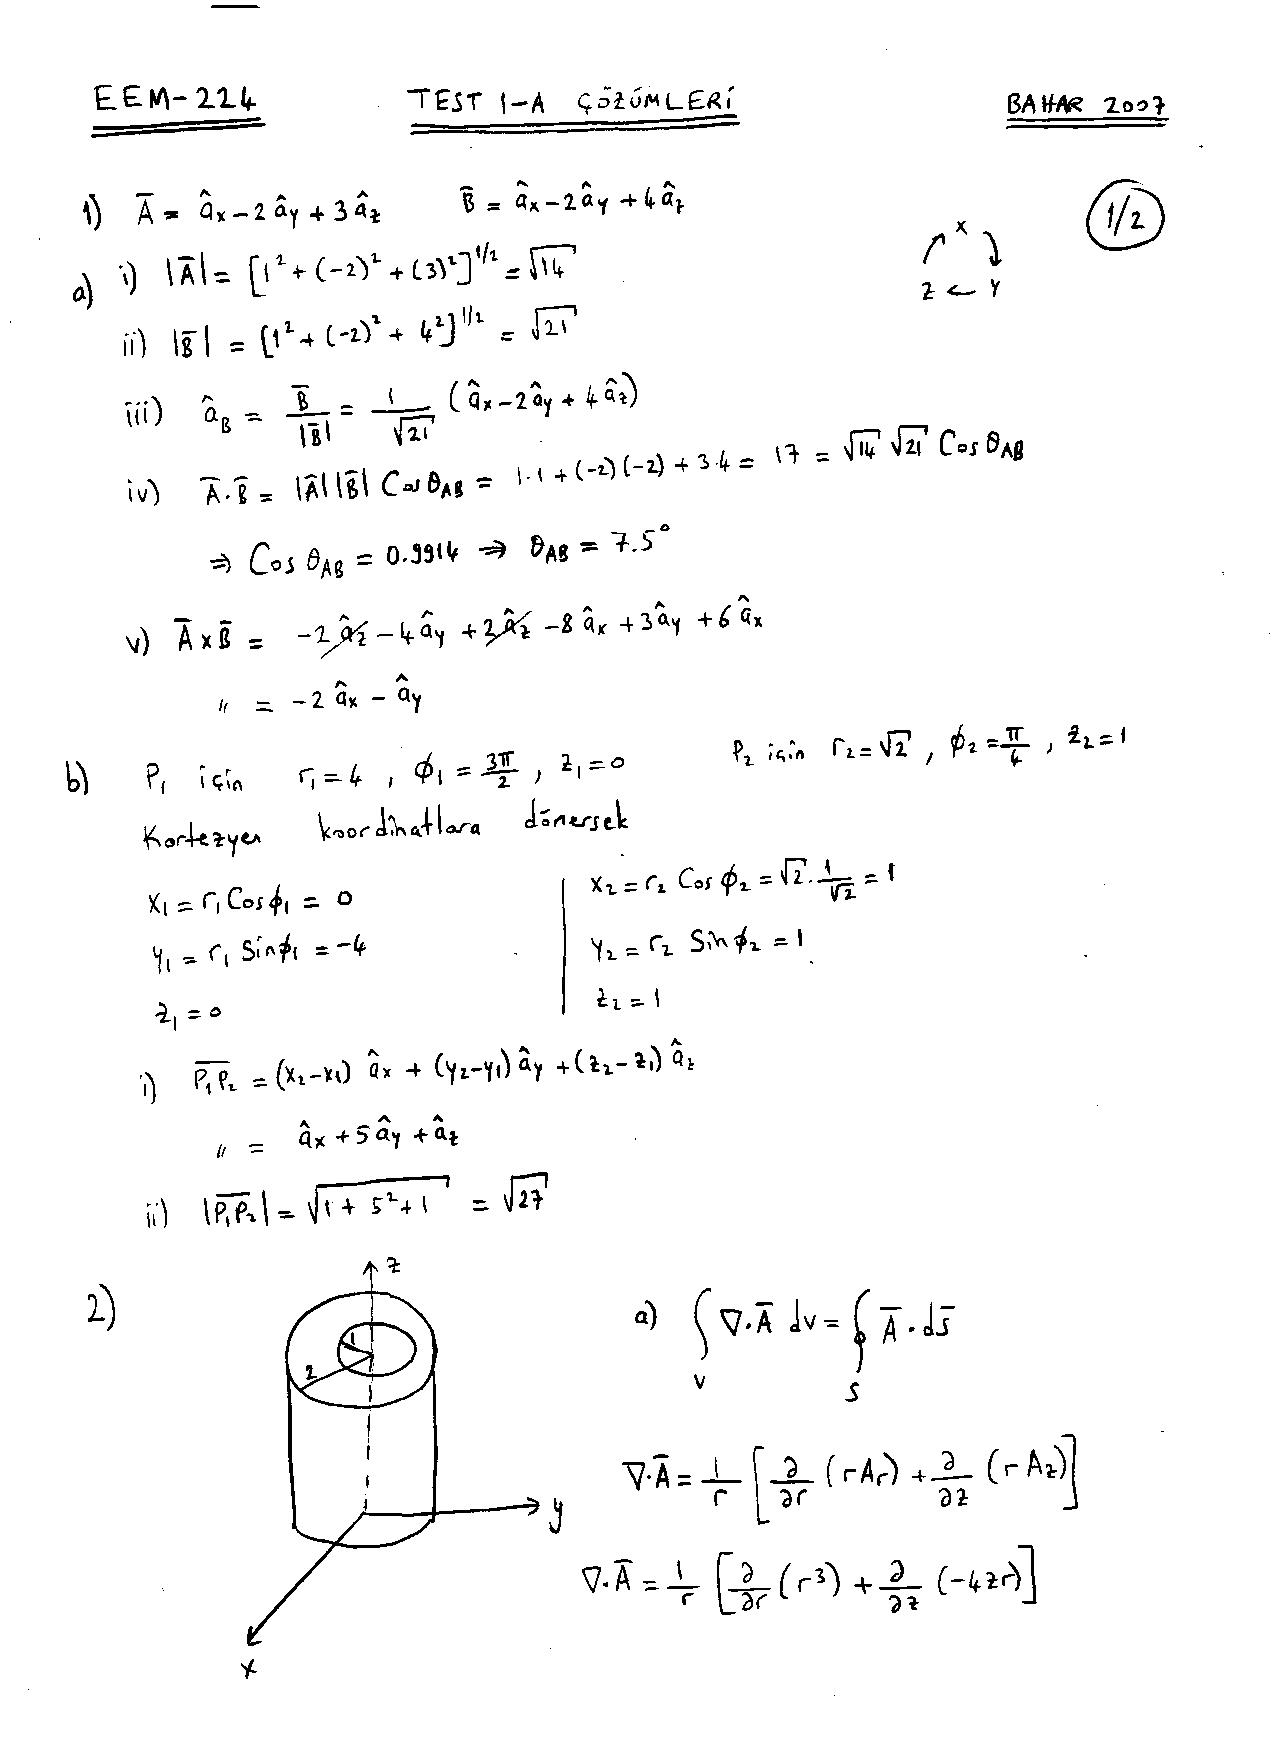 EEM-224 TEST 1-A ÇÖZÜMLERİ BAHAR 2007
1/2
1) A̅ = âx - 2ây + 3âz B̅ = âx - 2ây + 4âz
x
z ← y
a) i) |A̅| = [1² + (-2)² + (3)²]^1/2 = √14
ii) |B̅| = [1² + (-2)² + 4²]^1/2 = √21
iii) âB = B̅/|B̅| = 1/√21 (âx - 2ây + 4âz)
iv) A̅.B̅ = |A̅||B̅| Cos θAB = 1.1 + (-2)(-2) + 3.4 = 17 = √14 √21 Cos θAB
⇒ Cos θAB = 0.9914 ⇒ θAB = 7.5°
v) A̅ x B̅ = -2âz - 4ây + 2âz - 8âx + 3ây + 6âx
" = -2âx - ây
b) P₁ için r₁ = 4 , ϕ₁ = 3π/2 , z₁ = 0 P₂ için r₂ = √2 , ϕ₂ = π/4 , z₂ = 1
Kartezyen koordinatlara dönersek
x₁ = r₁ Cos ϕ₁ = 0 x₂ = r₂ Cos ϕ₂ = √2 . 1/√2 = 1
y₁ = r₁ Sin ϕ₁ = -4 y₂ = r₂ Sin ϕ₂ = 1
z₁ = 0 z₂ = 1
i) P₁P₂ = (x₂-x₁) âx + (y₂-y₁) ây + (z₂-z₁) âz
" = âx + 5ây + âz
ii) |P₁P₂| = √(1 + 5² + 1) = √27
2) z 1 2 y x
a) ∫V ∇.A̅ dv = ∮S A̅.ds̅
∇.A̅ = 1/r [∂/∂r (rAr) + ∂/∂z (rAz)]
∇.A̅ = 1/r [∂/∂r (r³) + ∂/∂z (-4zr)]